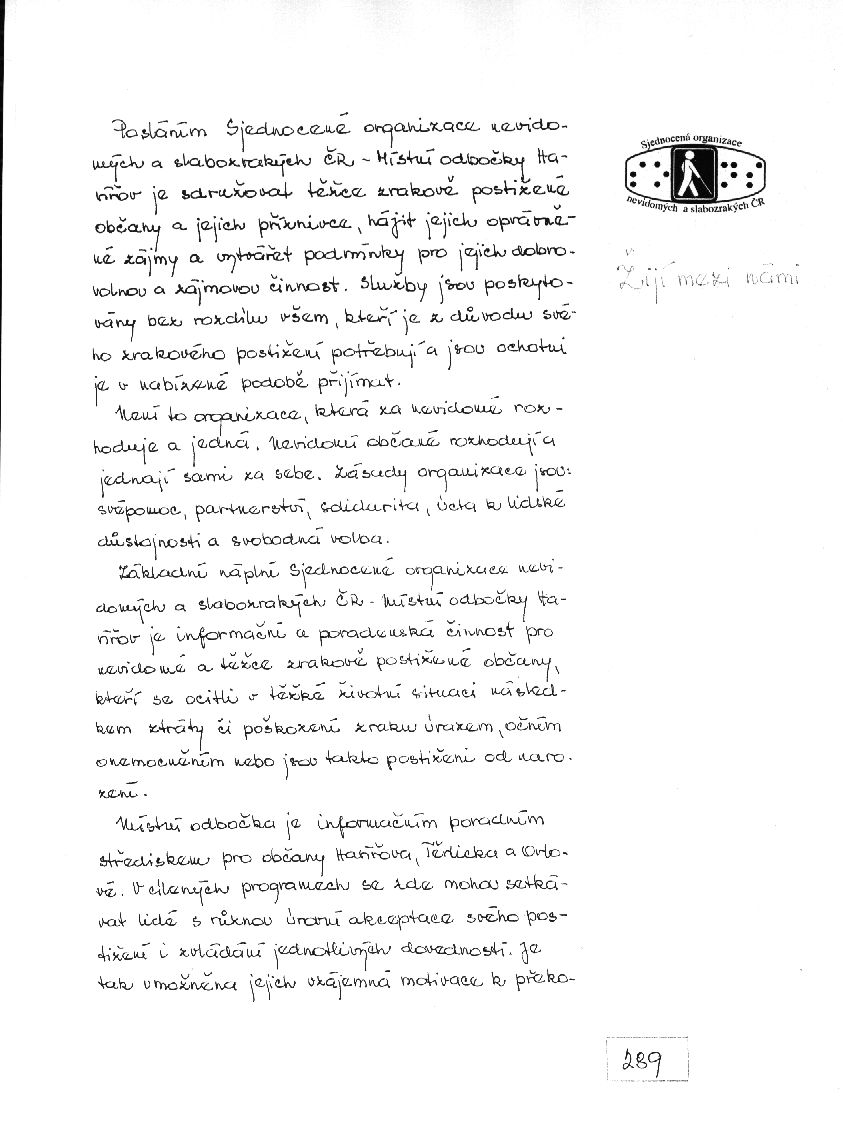 Posláním Sjednocené organizace nevido-
mých a slabozrakých ČR - Místní odbočky Ha-
vířov je sdružovat těžce zrakově postižené
občany a jejich příznivce, hájit jejich oprávně-
né zájmy a vytvářet podmínky pro jejich dobro-
volnou a zájmovou činnost. Služby jsou poskyto-
vány bez rozdílu všem, kteří je z důvodu své-
ho zrakového postižení potřebují a jsou ochotni
je v nabízené podobě přijímat.
Není to organizace, která za nevidomé roz-
hoduje a jedná. Nevidomí občané rozhodují a
jednají sami za sebe. Zásady organizace jsou:
svépomoc, partnerství, solidarita, úcta k lidské
důstojnosti a svobodná volba.
Základní náplní Sjednocené organizace nevi-
domých a slabozrakých ČR - Místní odbočky Ha-
vířov je informační a poradenská činnost pro
nevidomé a těžce zrakově postižené občany,
kteří se ocitli v těžké životní situaci násled-
kem ztráty či poškození zraku úrazem, očním
onemocněním nebo jsou takto postiženi od naro-
zení.
Místní odbočka je informačním poradním
střediskem pro občany Havířova, Těrlicka a Orlo-
vé. V cílených programech se zde mohou setká-
vat lidé s různou úrovní akceptace svého pos-
tižení i zvládání jednotlivých dovedností. Je
tak umožněna jejich vzájemná motivace k překo-
Sjednocená organizace
nevidomých a slabozrakých ČR
Žijí mezi námi
289